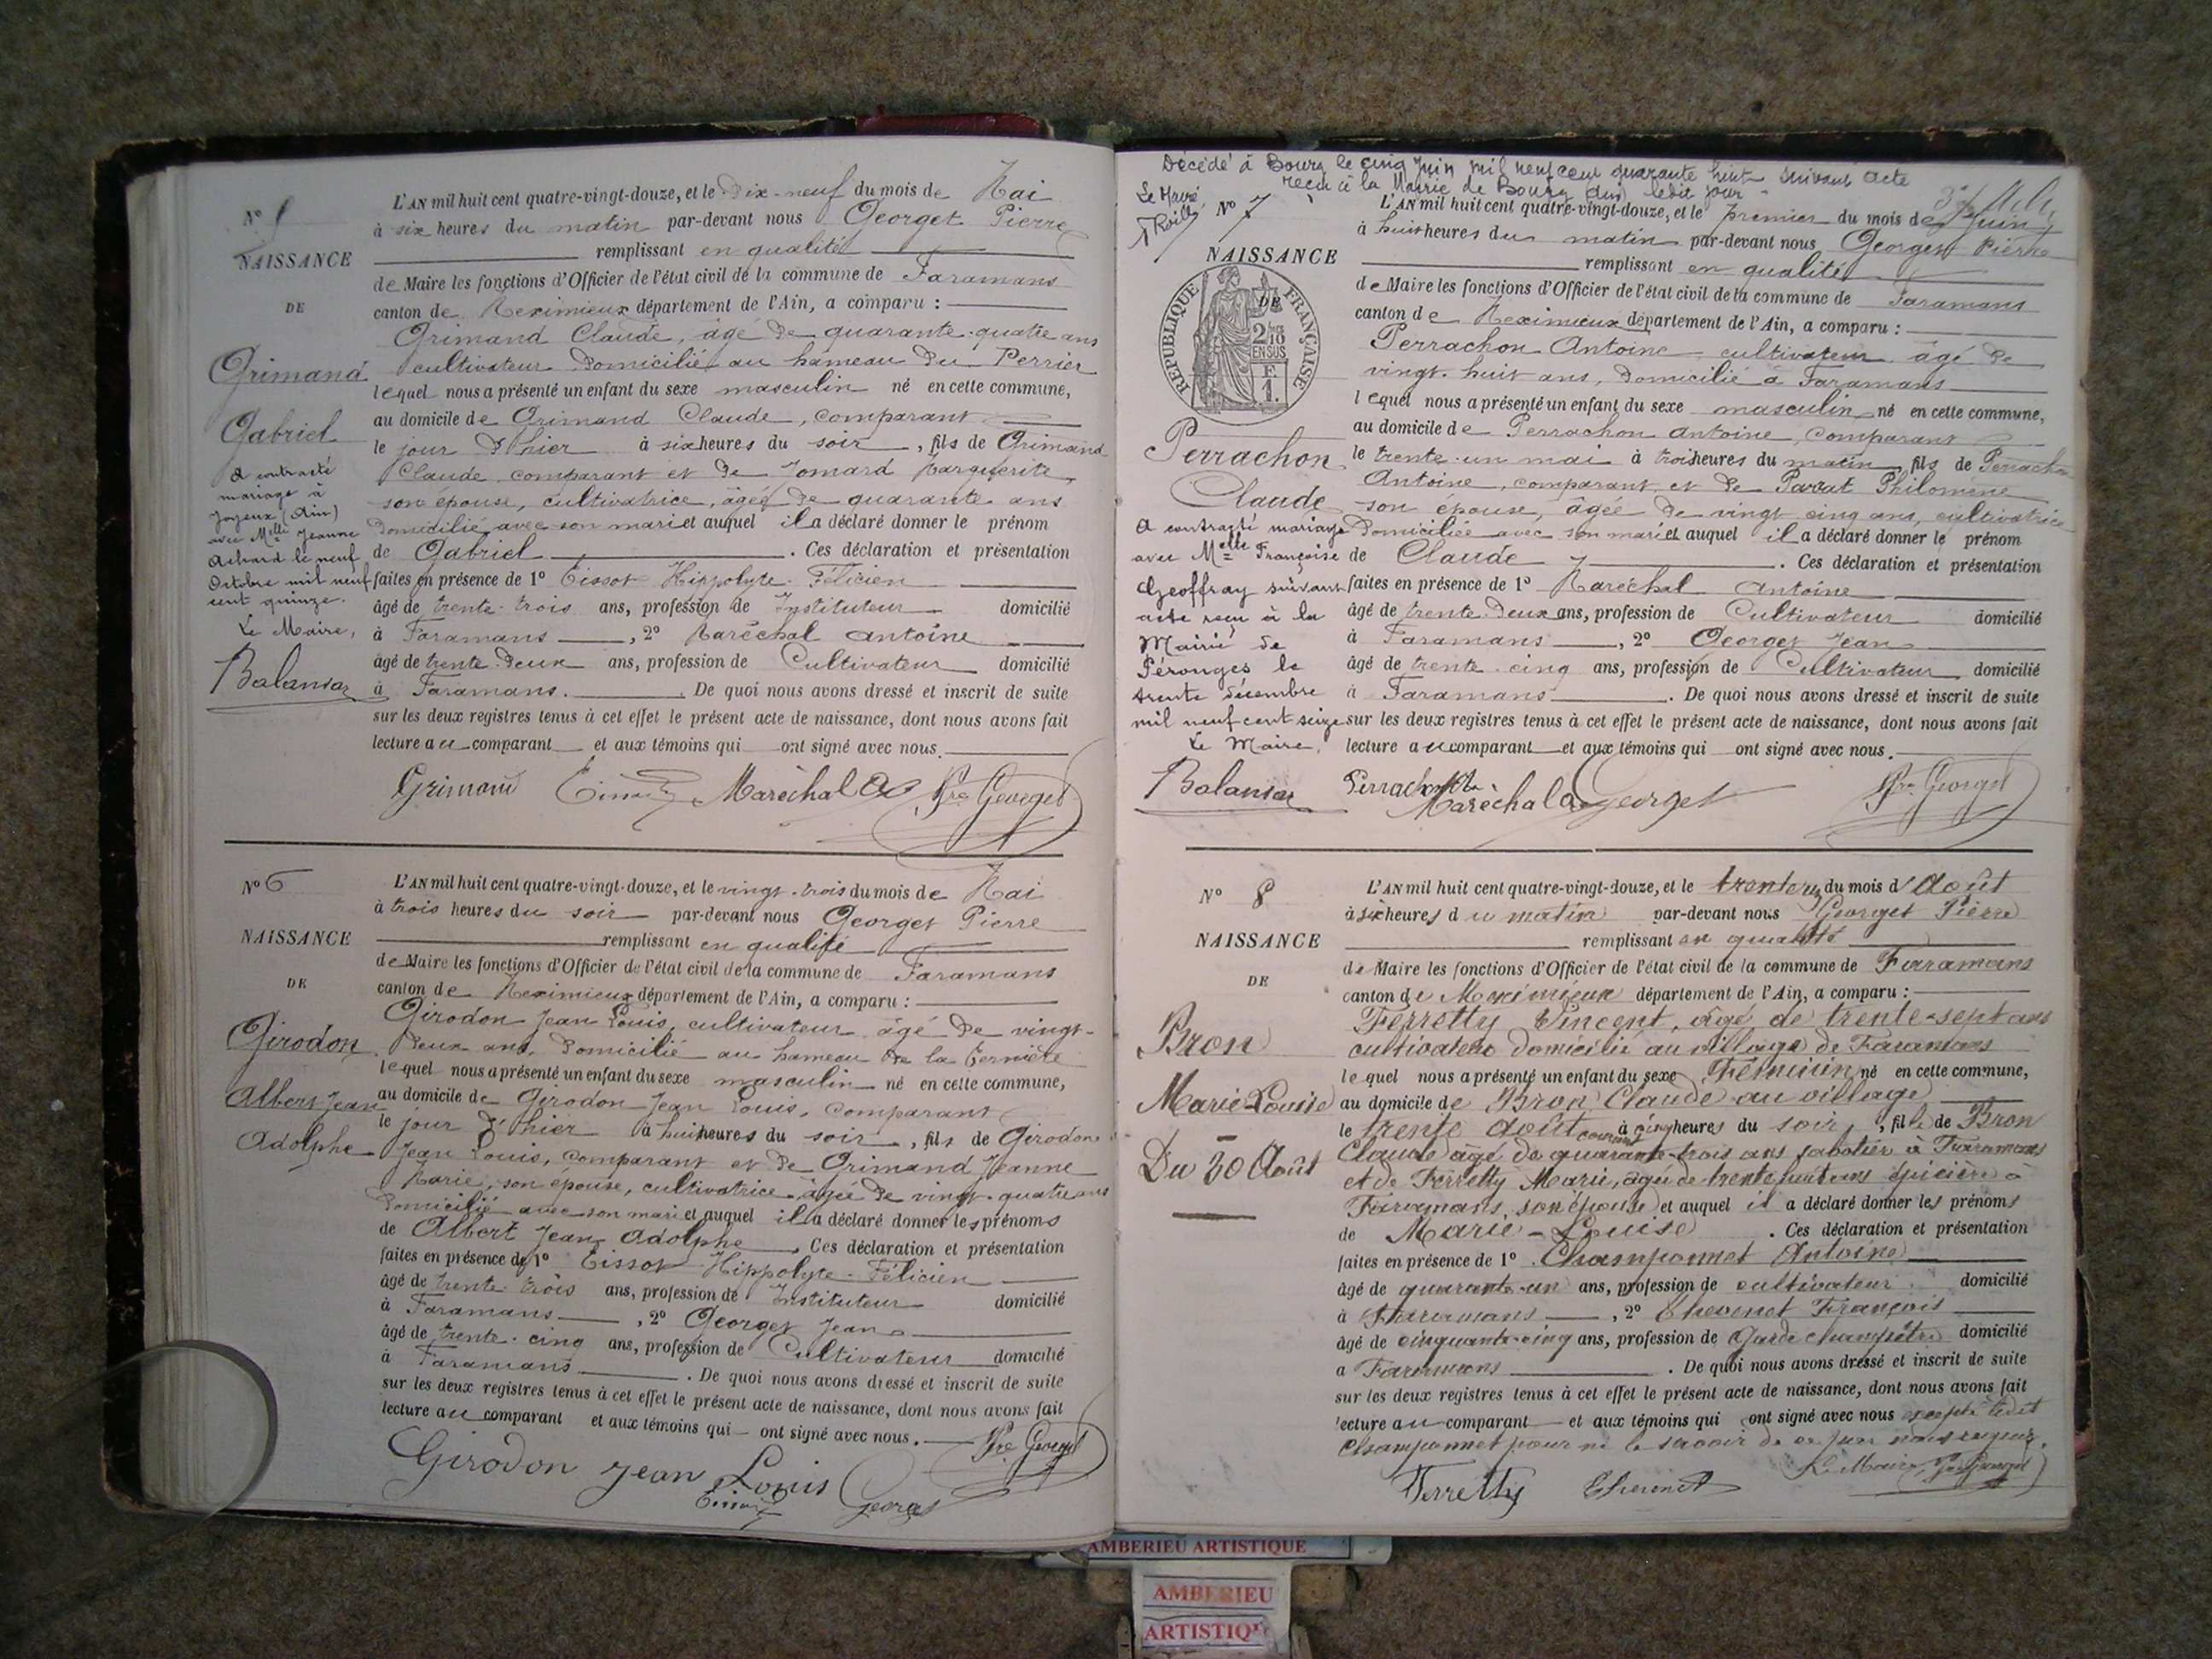 N° 5
NAISSANCE
DE
Grimand
Gabriel
A contracté
mariage à
Joyeux (Ain)
avec Melle Jeanne
Achard le neuf
Octobre mil neuf
cent quinze.
Le Maire,
Balansac
L'AN mil huit cent quatre-vingt-douze, et le Dix-neuf du mois de Mai
à six heures du matin par-devant nous Georget Pierre
remplissant en qualité
de Maire les fonctions d'Officier de l'état civil de la commune de Faramans
canton de Meximieux département de l'Ain, a comparu :
Grimand Claude, âgé de quarante-quatre ans
cultivateur domicilié au hameau du Perrier
lequel nous a présenté un enfant du sexe masculin né en cette commune,
au domicile de Grimand Claude, comparant
le jour d'hier à six heures du soir, fils de Grimand
Claude, comparant et de Jomard Marguerite,
son épouse, cultivatrice, âgée de quarante ans
domicilié avec son mari et auquel il a déclaré donner le prénom
de Gabriel. Ces déclaration et présentation
faites en présence de 1° Tissot Hippolyte Félicien
âgé de trente-trois ans, profession de Instituteur domicilié
à Faramans, 2° Maréchal Antoine
âgé de trente-deux ans, profession de Cultivateur domicilié
à Faramans. De quoi nous avons dressé et inscrit de suite
sur les deux registres tenus à cet effet le présent acte de naissance, dont nous avons fait
lecture au comparant et aux témoins qui ont signé avec nous.
Grimand Tissot Maréchal A Pre Georget
N° 6
NAISSANCE
DE
Girodon
Albert Jean
Adolphe
L'AN mil huit cent quatre-vingt-douze, et le vingt-trois du mois de Mai
à trois heures du soir par-devant nous Georget Pierre
remplissant en qualité
de Maire les fonctions d'Officier de l'état civil de la commune de Faramans
canton de Meximieux département de l'Ain, a comparu :
Girodon Jean Louis, cultivateur âgé de vingt-
deux ans, domicilié au hameau de la
lequel nous a présenté un enfant du sexe masculin né en cette commune,
au domicile de Girodon Jean Louis, comparant
le jour d'hier à huit heures du soir, fils de Girodon
Jean Louis, comparant et de Grimand Jeanne
Marie, son épouse, cultivatrice, âgée de vingt-quatre ans
domicilié avec son mari et auquel il a déclaré donner les prénoms
de Albert Jean Adolphe. Ces déclaration et présentation
faites en présence de 1° Tissot Hippolyte-Félicien
âgé de trente-trois ans, profession de Instituteur domicilié
à Faramans, 2° Georget Jean
âgé de trente-cinq ans, profession de Cultivateur domicilié
à Faramans. De quoi nous avons dressé et inscrit de suite
sur les deux registres tenus à cet effet le présent acte de naissance, dont nous avons fait
lecture au comparant et aux témoins qui ont signé avec nous. Pre Georget
Girodon Jean Louis
Tissot Georget
Décédé à Bourg le cinq juin mil neuf cent quarante huit suivant acte
reçu à la Mairie de Bourg dudit jour
Le Maire,
N° 7
NAISSANCE
DE
RÉPUBLIQUE FRANÇAISE
2/10
EN SUS
F.
1.
Perrachon
Claude
A contracté mariage
avec Melle Françoise
Geoffray suivant
acte reçu à la
Mairie de
Pérouges le
trente décembre
mil neuf cent seize
Le Maire,
Balansac
L'AN mil huit cent quatre-vingt-douze, et le premier du mois de Juin
à huit heures du matin par-devant nous Georget Pierre
remplissant en qualité
de Maire les fonctions d'Officier de l'état civil de la commune de Faramans
canton de Meximieux département de l'Ain, a comparu :
Perrachon Antoine cultivateur âgé de
vingt-huit ans, domicilié à Faramans
lequel nous a présenté un enfant du sexe masculin né en cette commune,
au domicile de Perrachon Antoine, comparant
le trente-un mai à trois heures du matin, fils de Perrachon
Antoine, comparant et de Parrat Philomène
son épouse, âgée de vingt cinq ans, cultivatrice
domiciliée avec son mari et auquel il a déclaré donner le prénom
de Claude. Ces déclaration et présentation
faites en présence de 1° Maréchal Antoine
âgé de trente-deux ans, profession de Cultivateur domicilié
à Faramans, 2° Georget Jean
âgé de trente-cinq ans, profession de Cultivateur domicilié
à Faramans. De quoi nous avons dressé et inscrit de suite
sur les deux registres tenus à cet effet le présent acte de naissance, dont nous avons fait
lecture au comparant et aux témoins qui ont signé avec nous.
Perrachon Maréchal A Georget Pre Georget
N° 8
NAISSANCE
DE
Bron
Marie-Louise
Du 30 Août
L'AN mil huit cent quatre-vingt-douze, et le trente un du mois d'Août
à six heures du matin par-devant nous Georget Pierre
remplissant en qualité
de Maire les fonctions d'Officier de l'état civil de la commune de Faramans
canton de Meximieux département de l'Ain, a comparu :
Ferretty Vincent, âgé de trente-sept ans
cultivateur domicilié au village de Faramans
lequel nous a présenté un enfant du sexe Féminin né en cette commune,
au domicile de Bron Claude au village
le trente août courant à cinq heures du soir, fille de Bron
Claude âgé de quarante-trois ans sabotier à Faramans
et de Ferretty Marie, âgée de trente huit ans épicière à
Faramans, son épouse et auquel il a déclaré donner les prénoms
de Marie-Louise. Ces déclaration et présentation
faites en présence de 1° Champonnet Antoine
âgé de quarante-un ans, profession de cultivateur domicilié
à Faramans, 2° Thevenet François
âgé de cinquante-cinq ans, profession de Garde champêtre domicilié
à Faramans. De quoi nous avons dressé et inscrit de suite
sur les deux registres tenus à cet effet le présent acte de naissance, dont nous avons fait
lecture au comparant et aux témoins qui ont signé avec nous excepté ledit
Champonnet pour ne le savoir de ce
Le Maire, Pre Georget
Ferretty Thevenet
AMBERIEU ARTISTIQUE
AMBERIEU
ARTISTIQU